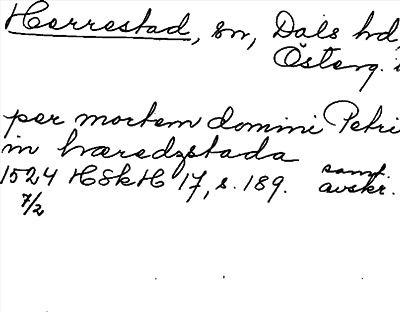 Herrestad, sn, Dals hd,
Österg.
per mortem domini Petri
in hæredzstada
1524 HSkH 17, s. 189. samt.
avskr.
7/2